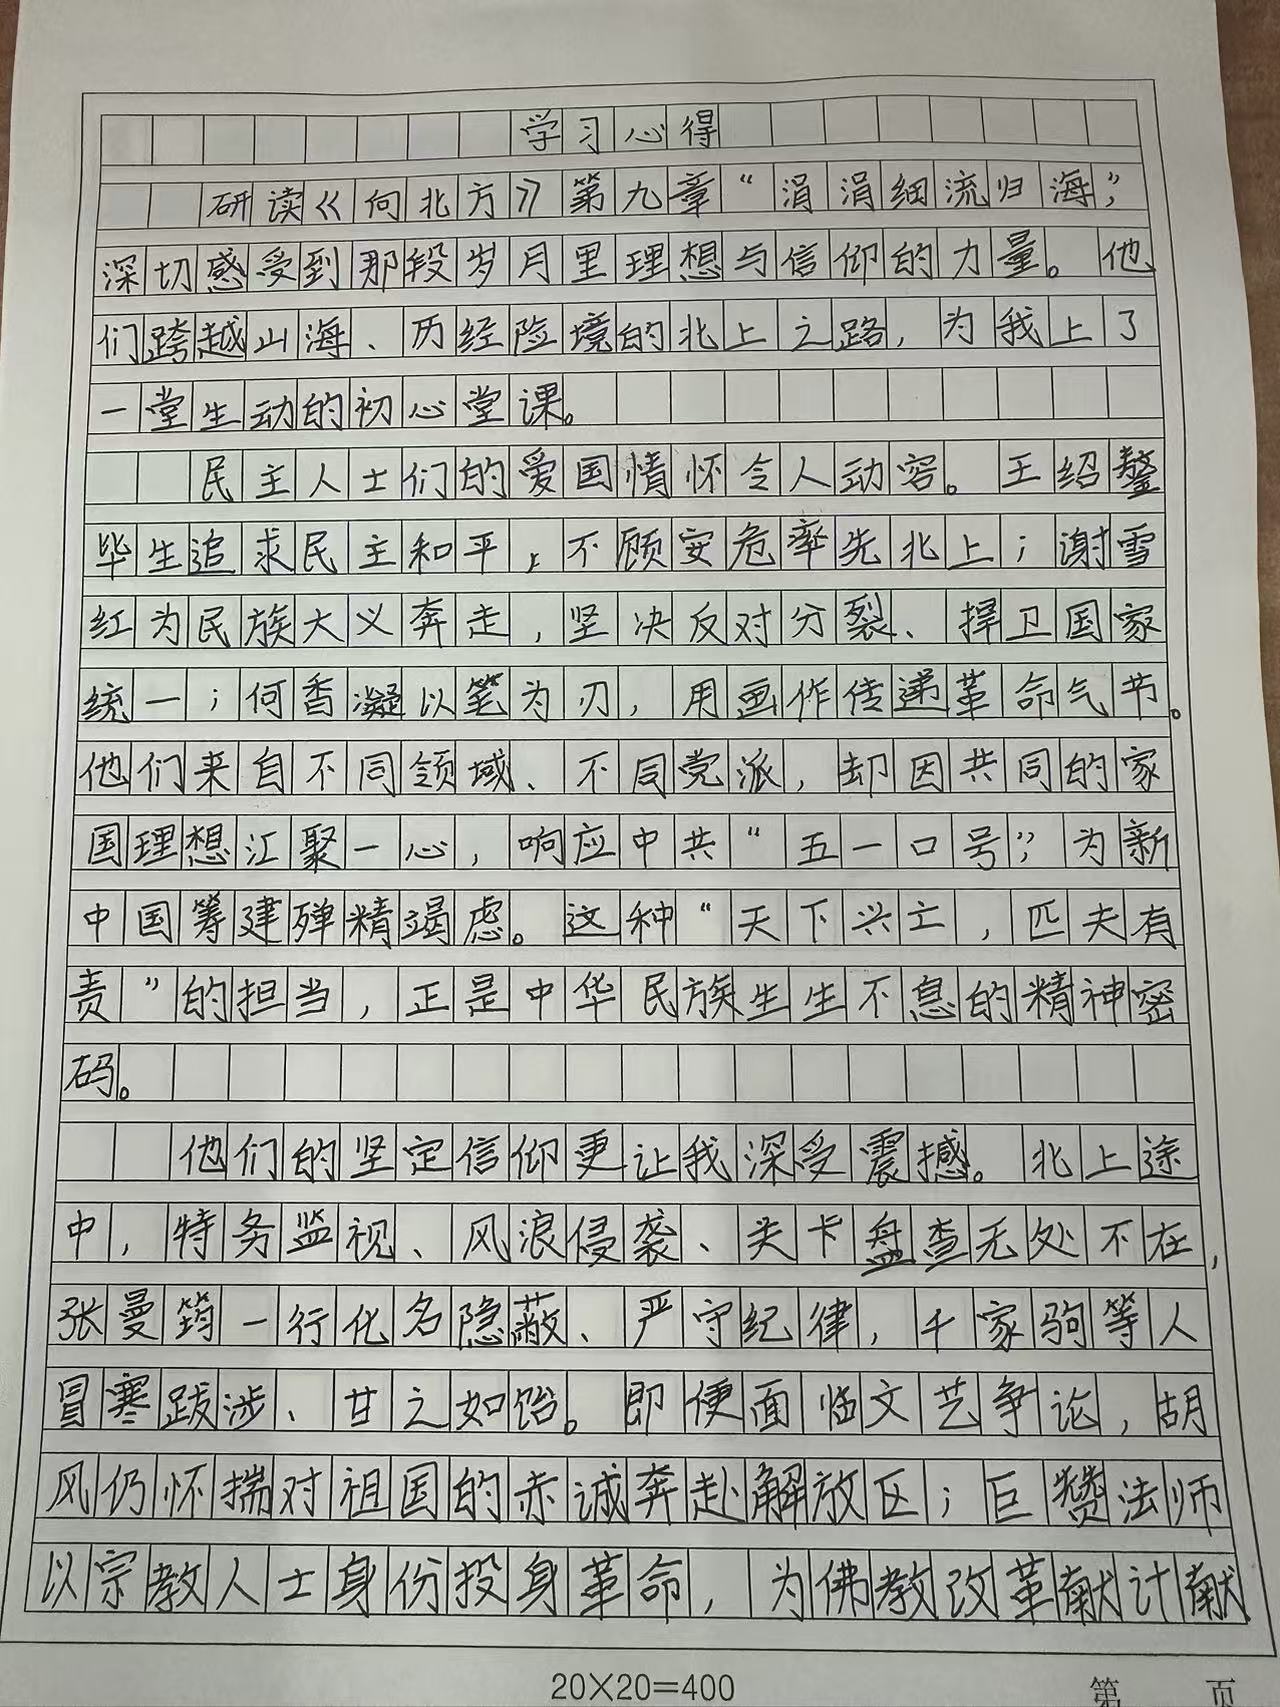 学习心得
研读《向北方》第九章“涓涓细流归海”，
深切感受到那段岁月里理想与信仰的力量。他
们跨越山海、历经险境的北上之路，为我上了
一堂生动的初心堂课。
民主人士们的爱国情怀令人动容。王绍鏊
毕生追求民主和平，不顾安危率先北上；谢雪
红为民族大义奔走，坚决反对分裂、捍卫国家
统一；何香凝以笔为刃，用画作传递革命气节。
他们来自不同领域、不同党派，却因共同的家
国理想汇聚一心，响应中共“五一口号”，为新
中国筹建殚精竭虑。这种“天下兴亡，匹夫有
责”的担当，正是中华民族生生不息的精神密
码。
他们的坚定信仰更让我深受震撼。北上途
中，特务监视、风浪侵袭、关卡盘查无处不在，
张曼筠一行化名隐蔽、严守纪律，千家驹等人
冒寒跋涉、甘之如饴。即便面临文艺争论，胡
风仍怀揣对祖国的赤诚奔赴解放区；巨赞法师
以宗教人士身份投身革命，为佛教改革献计献
20×20=400
第 页